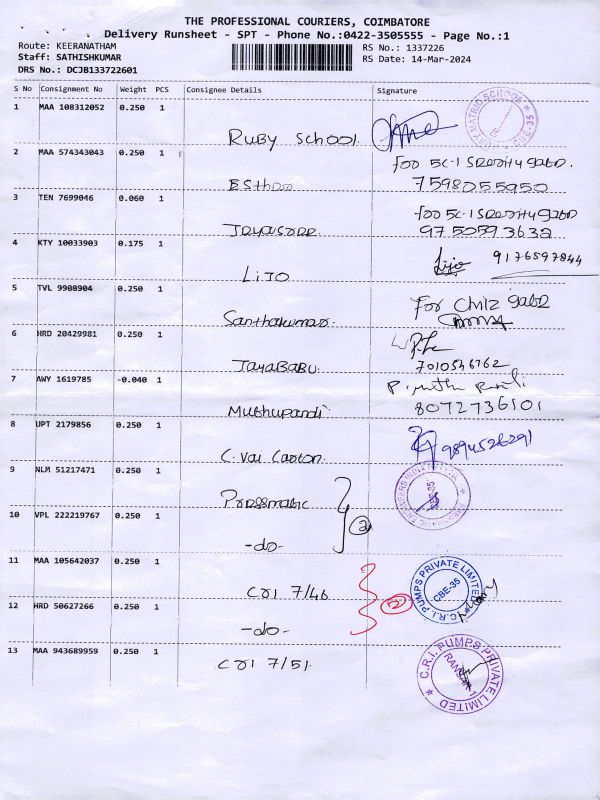 THE PROFESSIONAL COURIERS, COIMBATORE
Delivery Runsheet - SPT - Phone No.:0422-3505555 - Page No.:1
Route: KEERANATHAM
RS No.: 1337226
Staff: SATHISHKUMAR
RS Date: 14-Mar-2024
DRS No.: DCJB133722601
S No Consignment No Weight PCS Consignee Details Signature
1 MAA 108312052 0.250 1
RUBY SCHOOL
2 MAA 574343043 0.250 1
for SC-1 Security gate.
Esther 7598055950
3 TEN 7699046 0.060 1
for SC-1 Security gate
9750593632
4 KTY 10033903 0.175 1
LIJO Lijo 9176597844
5 TVL 9908904 0.250 1
For Chil2 gate
Santhakumar
6 HRD 20429981 0.250 1
JayaBABU 7010546762
7 AWY 1619785 -0.040 1
Muthupandi 8072736101
8 UPT 2179856 0.250 1
9894526291
C. Vai Carton.
9 NLM 51217471 0.250 1
Pressmatic
10 VPL 222219767 0.250 1
2
-do-
11 MAA 105642037 0.250 1
C.R.I. PUMPS PRIVATE LIMITED
CBE-35
CRI 7/46
12 HRD 50627266 0.250 1
2
-do-
13 MAA 943689959 0.250 1
CRI 7/51.
C.R.I. PUMPS PRIVATE LIMITED